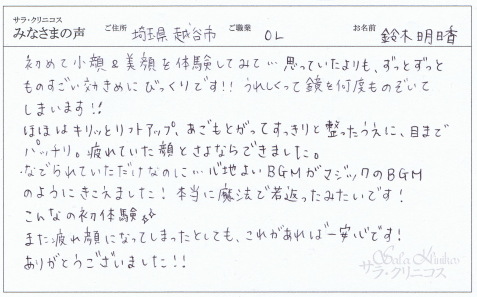 サラ・クリニコス
みなさまの声 ご住所 埼玉県越谷市 ご職業 OL お名前 鈴木明日香
初めて小顔&美顔を体験してみて…思っていたよりも、ずっとずっと
ものすごい効きめにびっくりです!!うれしくって鏡を何度ものぞいて
しまいます!!
ほほはキリッとリフトアップ、あごもとがってすっきりと整ったうえに、目まで
パッチリ。疲れていた顔とさよならできました。
なでられていただけなのに…心地よいBGMがマジックのBGM
のようにきこえました!本当に魔法で若返ったみたいです!
こんなの初体験☆☆
また疲れ顔になってしまったとしても、これがあれば一安心です!
ありがとうございました!!
Sala Klinikos
サラ・クリニコス